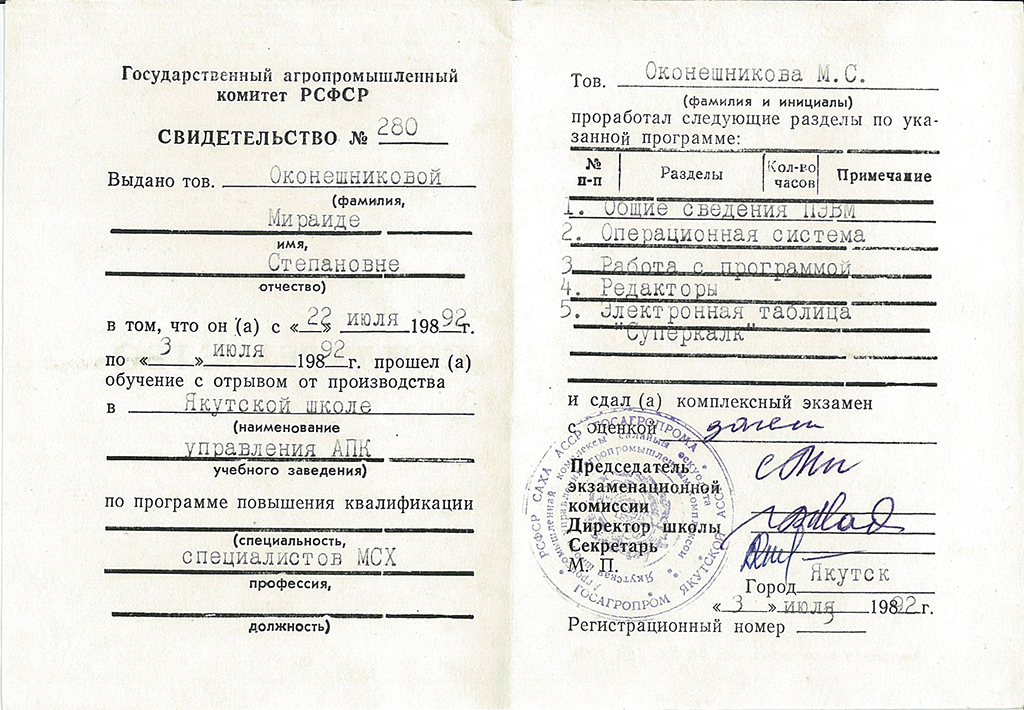 Государственный агропромышленный
комитет РСФСР
СВИДЕТЕЛЬСТВО № 280
Выдано тов. Оконешниковой
(фамилия,
Мираиде
имя,
Степановне
отчество)
в том, что он (а) с «22» июля 19892г.
по «3» июля 19892г. прошел (а)
обучение с отрывом от производства
в Якутской школе
(наименование
управления АПК
учебного заведения)
по программе повышения квалификации
(специальность,
специалистов МСХ
профессия,
должность)
Тов. Оконешникова М.С.
(фамилия и инициалы)
проработал следующие разделы по ука-
занной программе:
№ п-п Разделы Кол-во часов Примечание
1. Общие сведения ПЭВМ
2. Операционная система
3 Работа с программой
4. Редакторы
5. Электронная таблица
"Суперкалк"
и сдал (а) комплексный экзамен
с оценкой зачет
Председатель
экзаменационной
комиссии
Директор школы
Секретарь
М. П.
РСФСР САХА АССР ГОСАГРОПРОМА
ГОСАГРОПРОМ ЯКУТСКОЙ АССР
Город Якутск
«3» июля 19892г.
Регистрационный номер